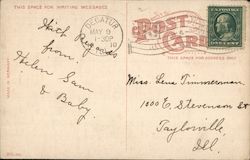 THIS SPACE FOR WRITING MESSAGES
DECATUR
MAY 9
1-30P
10
POST CARD
THIS SPACE FOR ADDRESS ONLY
With Regards
from
Helen Sam
& Baby.
Miss. Lena Timmerman
1000 E. Stevenson St
Taylorville,
Ill.
MADE IN GERMANY